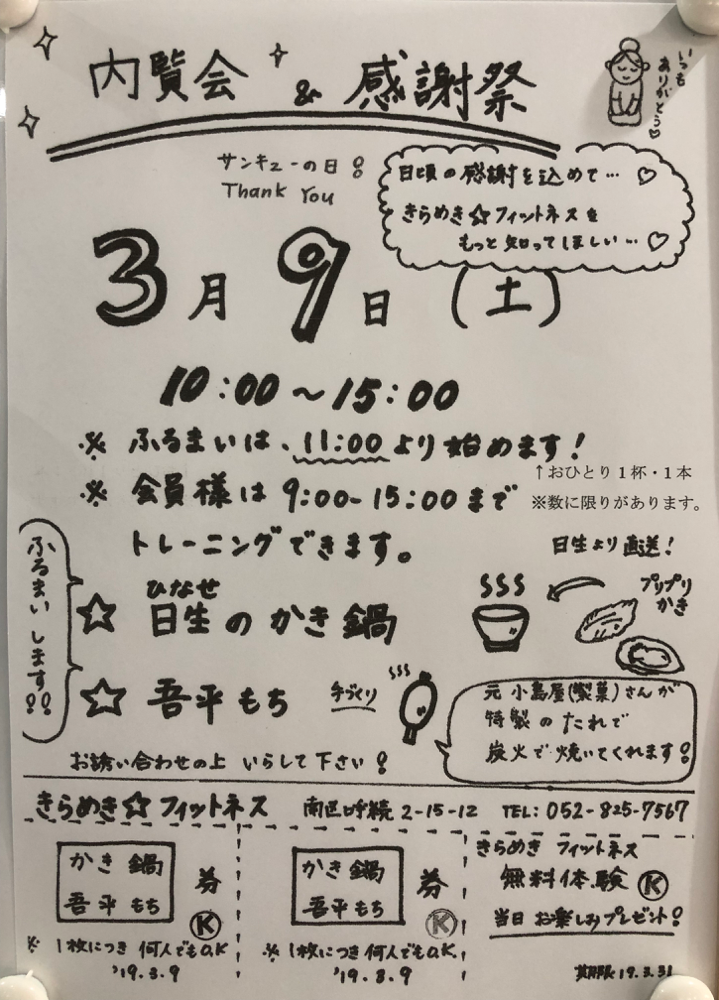 内覧会 & 感謝祭
いつも
ありがとう♡
サンキューの日!
Thank You
日頃の感謝を込めて… ♡
きらめき☆フィットネスを
もっと知ってほしい… ♡
3月9日(土)
10:00〜15:00
※ ふるまいは、11:00より始めます!
↑おひとり1杯・1本
※ 会員様は 9:00-15:00まで
※数に限りがあります。
トレーニングできます。
日生より直送!
ふるまいします!!
ひなせ
☆ 日生のかき鍋
プリプリ
かき
☆ 吾平もち
手づくり
元小島屋(製菓)さんが
特製のたれで
炭火で焼いてくれます!
お誘い合わせの上 いらして下さい!
きらめき☆フィットネス 南区呼続 2-15-12 TEL:052-825-7567
かき鍋
吾平もち
券
Ⓚ
※ 1枚につき 何人でもO.K
'19.3.9
かき鍋
吾平もち
券
Ⓚ
※ 1枚につき 何人でもO.K
'19.3.9
きらめき フィットネス
無料体験 Ⓚ
当日 お楽しみプレゼント!
期限 19.3.31